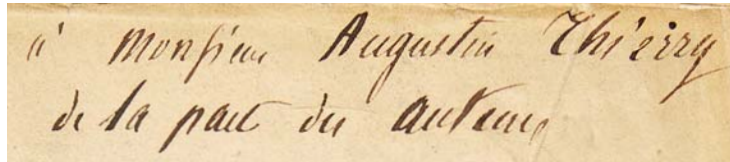 à Monsieur Augustin Thierry
de la part du auteur